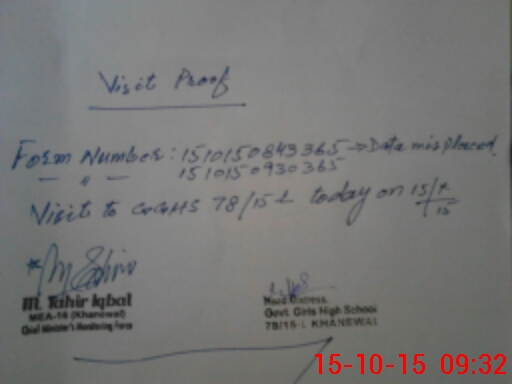 Visit Proof
Form Number: 151015084 3365 → Data misplaced
— " — 151015093 0365
Visit to GGHS 78/15-L today on 15/
15
M. Tahir Iqbal
MEA-16 (Khanewal)
Chief Minister's Monitoring Force
Head Mistress
Govt. Girls High School
78/15-L KHANEWAL
15-10-15 09:32